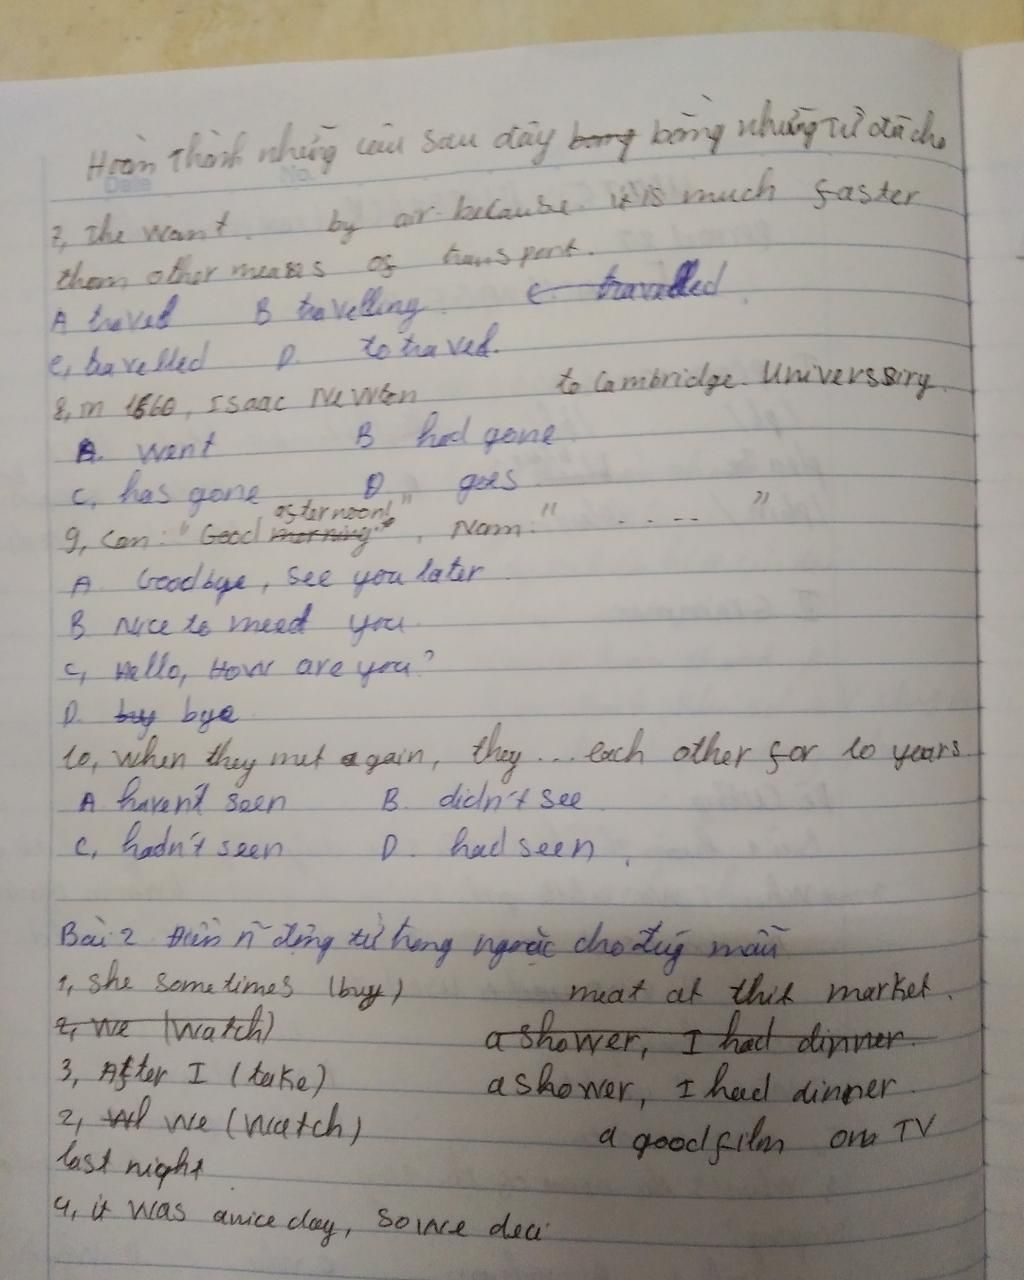 Hoàn thành những câu sau đây bằng những từ đã cho
7, the want by air because it is much faster
them other means of transport.
A travel B travelling c travelled
C, travelled D. to travel.
8, in 1660, Isaac Newton to Cambridge. Universsiry
A. went B had gone
C, has gone D goes
9, Lan: "Good morning afternoon!", Nam: " ..... "
A. Goodbye, see you later
B Nice to meed you
C, Hello, How are you?
D. by bye
10, when they met again, they ... each other for 10 years
A haven't seen B. didn't see
C, hadn't seen D. had seen.
Bài 2 động từ trong ngoặc cho đúng mẫu
1, she sometimes (buy) meat at this market.
2, we (watch) a shower, I had dinner.
3, After I (take) a shower, I had dinner.
2, we (watch) a good film on TV
last night
4, it was a nice day, so we deci